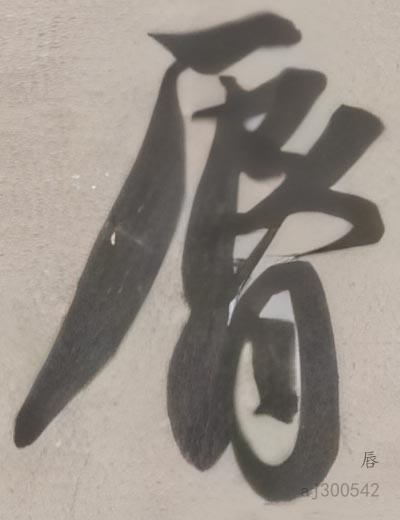 唇
唇
aj300542